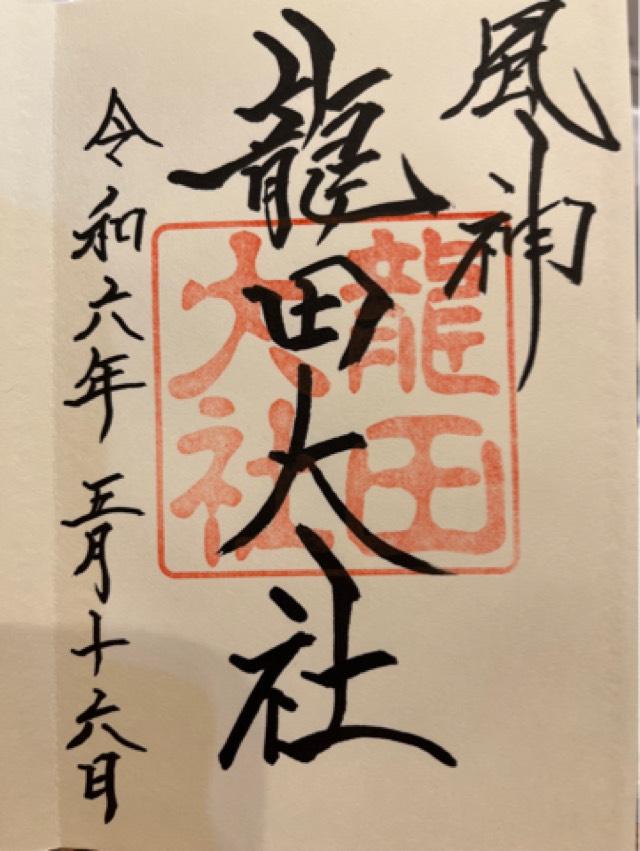 風神
龍田大社
龍田
大社
令和六年 五月十六日